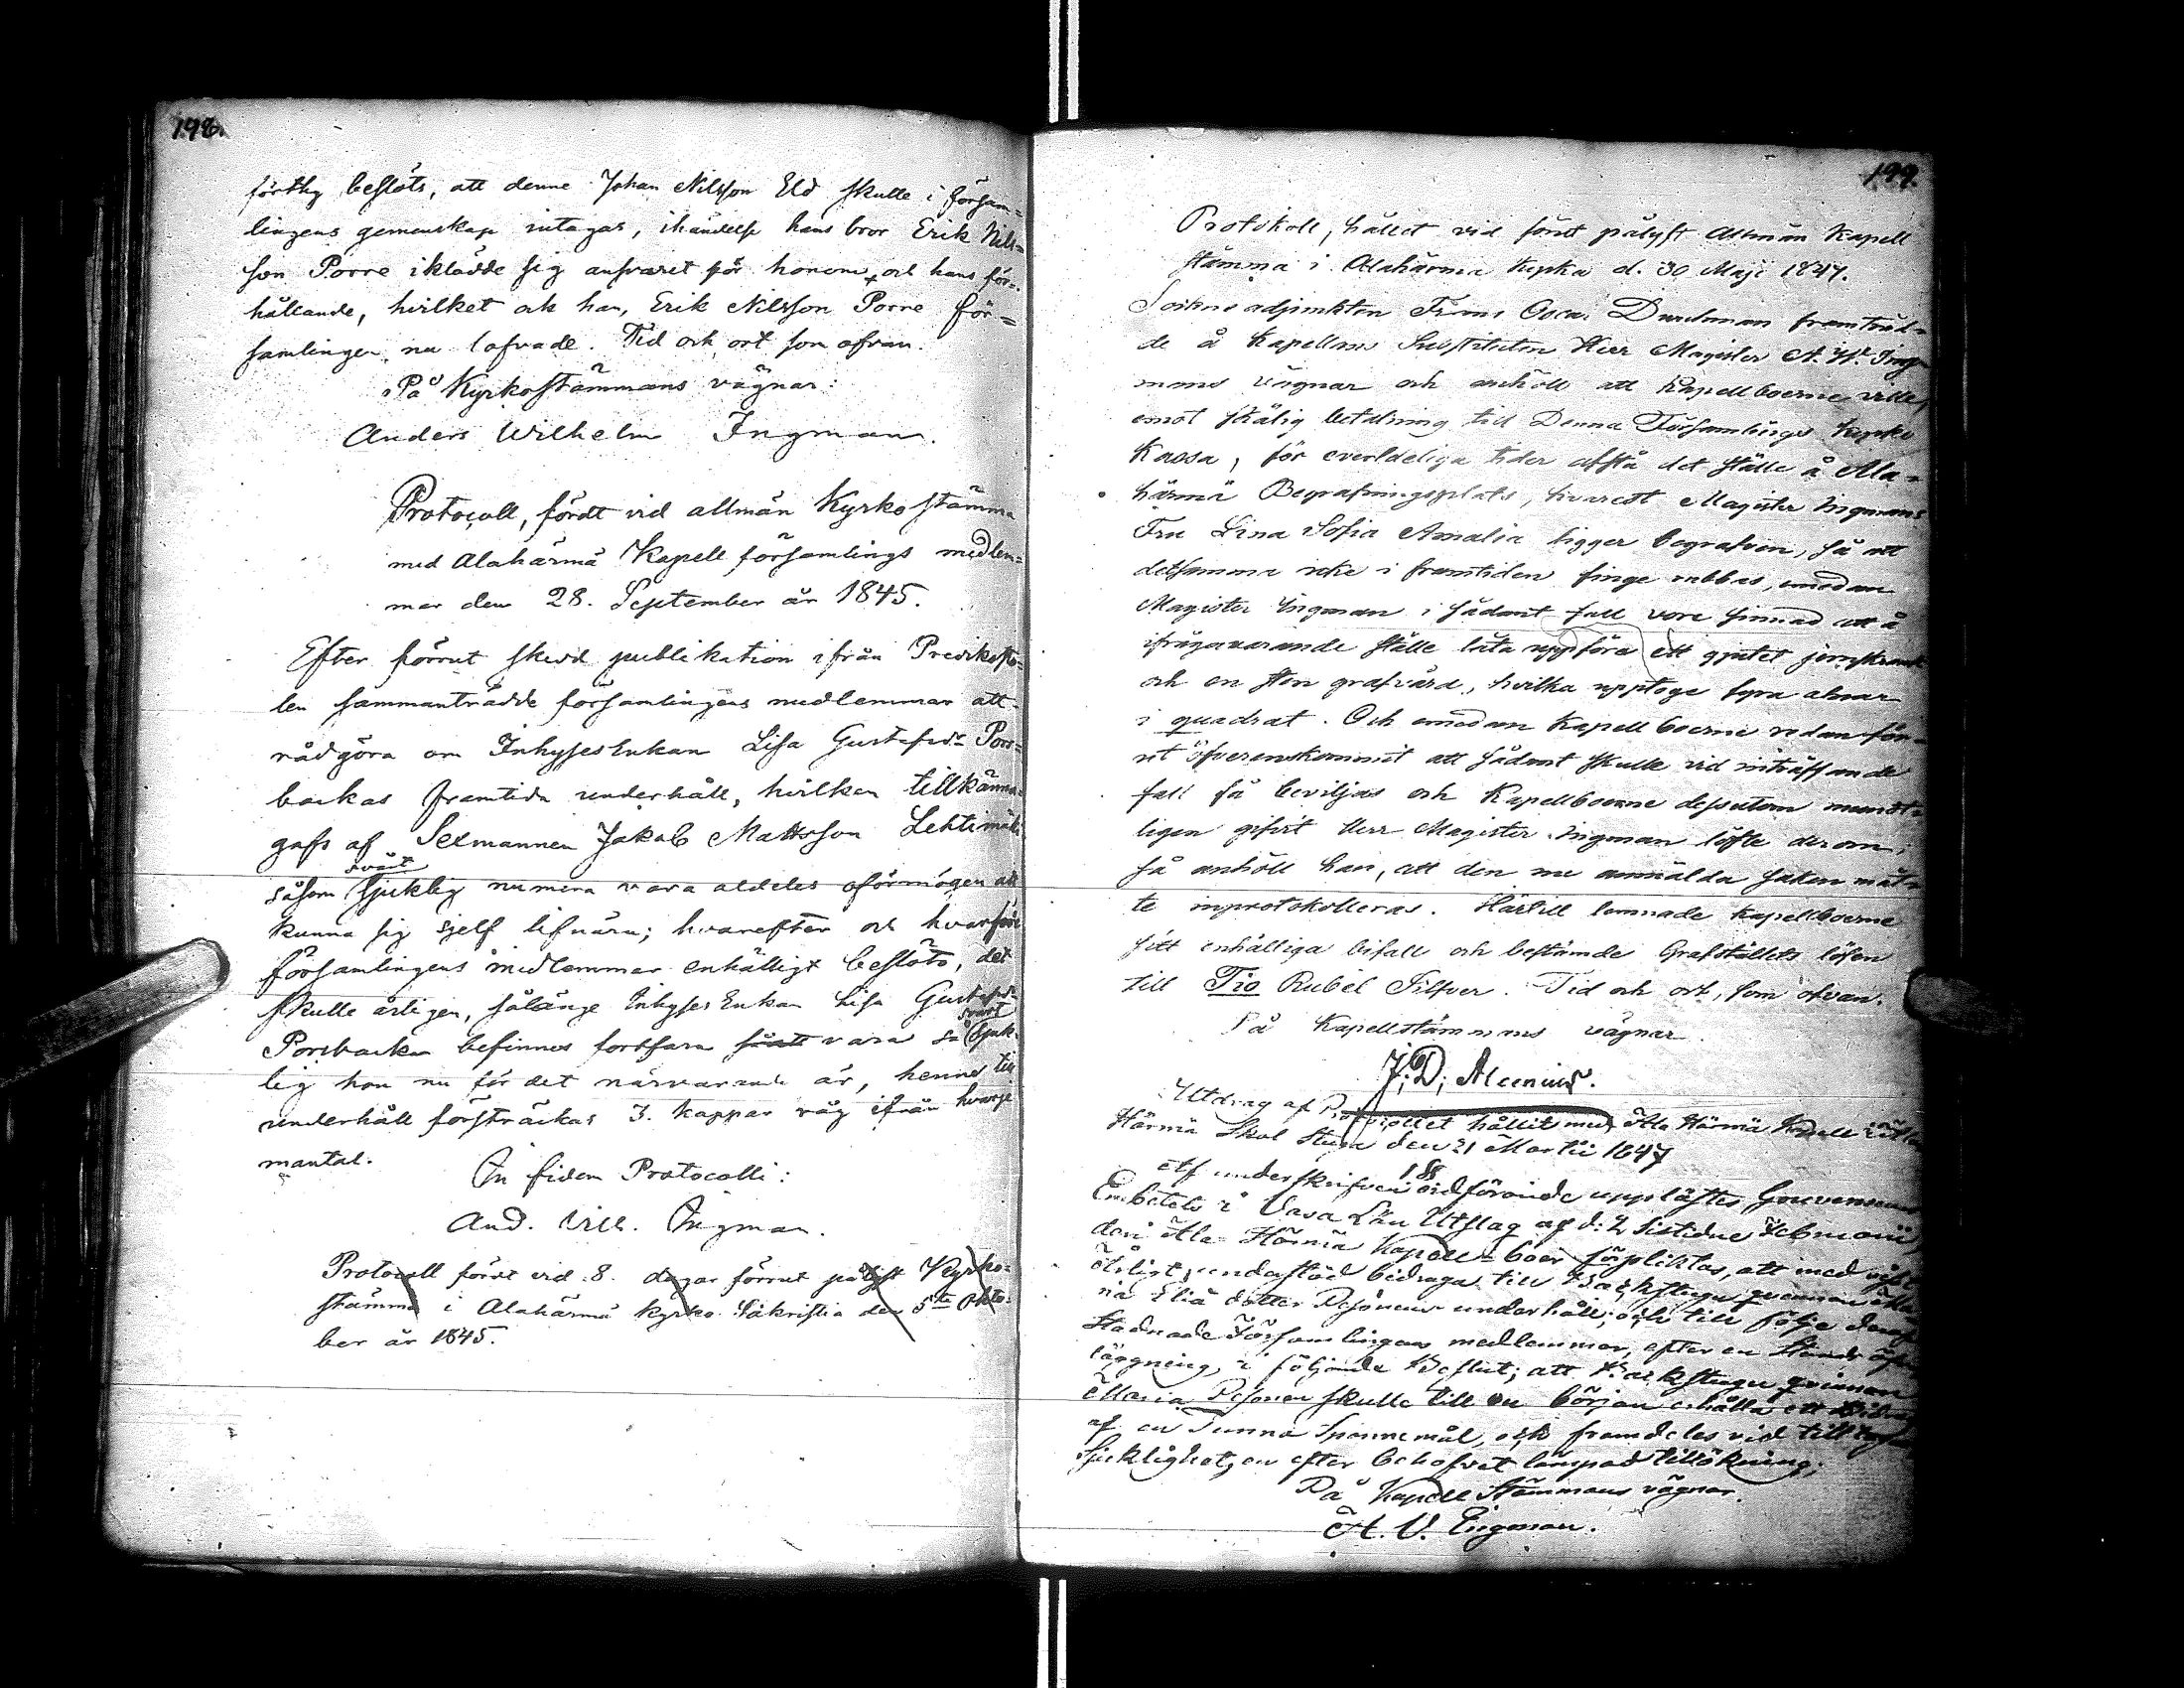 198.
förthy beslöts, att denne Johan Nilsson Eld skulle i försam=
lingens gemenskap intagas, ihändelse hans bror Erik Nils=
son Porre iklädde sig ansvaret för honom och hans för=
hållande, hvilket ock han, Erik Nilsson Porre för=
samlingen nu lofvade. Tid och ort som ofvan.
På Kyrkostämmans vägnar:
Anders Wilhelm Ingman.
Protocoll, fördt vid allmän Kyrkostämma
med Alahärmä Kapell församlings medlem=
mar den 28. September år 1845.
Efter förrut skedd publikation ifrån Prediksto=
len sammanträdde församlingens medlemmar att
rådgöra om InhysesEnkan Lisa Gustafsdr Pors=
backas framtida underhåll, hvilken tillkänna=
gafs af Sexmannen Jakob Mattsson Lehtimäki
såsom svårt sjuklig numera vara aldeles oförmögen att
kunna sig sjelf lifnära; hvarefter och hvarföre
församlingens medlemmar enhälligt beslöto, det
skulle årligen, sålänge Inhyses Enkan Lisa Gustafsdr
Porsbacka befinnes fortfara vara så svårt sjuk=
lig hon nu för det närvarande är, henne till
underhåll försträckas 3. kappar råg ifrån hvarje
mantal.
In fidem Protocolli:
And. Wilh. Ingman.
Protocoll fördt vid 8. dagar förrut pålyst Kyrko=
stämma i Alahärmä kyrko Sakristia den 5te Okto=
ber år 1845.
199.
Protokoll, hållet vid förut pålyst Allmän Kapell
stämma i Alahärmä kyrka d. 30 Maji 1847.
Sockne adjunkten Frans Oscar Durchman framträd=
de å Kapellans Substituten Herr Magister A. W. Ing=
mans vägnar och anhöll att Kapellboerne ville,
emot skälig betalning till Denna Församlings Kyrko
Kassa, för everldeliga tider afstå det ställe å Ala=
härmä Begrafningsplats, hvarest Magister Ingmans
Fru Lina Sofia Amalia ligger begrafven, så att
detsamma icke i framtiden finge rubbas, emedan
Magister Ingman i sådant fall vore sinnad att å
ifrågavarande ställe låta uppföra ett gjutet jernskrank
och en sten grafvård, hvilka upptoge fyra alnar
i quadrat. Och emedan Kapellboerne redan för=
ut öfverenskommit att sådant skulle vid inträffande
fall få beviljas och Kapellboerne dessutom munt=
ligen gifvit Herr Magister Ingman löfte derom;
så anhöll han, att den nu anmälda saken måt=
te inprotokolleras. Härtill lemnade kapellboerne
sitt enhälliga bifall och bestämde Grafställets lösen
till Tio Rubel Silfver. Tid och ort, som ofvan.
På Kapellstämmans vägnar.
J. D. Alcenius.
Utdrag af Protocollet hållit med Ala Härmä Kapell
Härmä Skol Stuga den 21 Martii 1847
1 §
Af underskrifven ordförande upplästes Gouverneurs
Embetets i Vasa Län Utslag af d. 2 sistidne Februarii,
deri Ala Härmä Kapell-boer förpliktas, att med
årligt understöd bidraga till Backstugu qvinnan Ma=
ria Elias dotter Pesonens underhåll; och till följe deraf
stadnade Församlingens medlemmar, efter en
läggning i följande Beslut; att Backstugu qvinnan
Maria Pesonen skulle till en början erhålla ett Bidrag
af en Tunna Spannemål, och framdeles vid
sjuklighet, en efter behofvet lämpad tillökning;
På Kapell Stämmans vägnar.
A. V. Ingman.